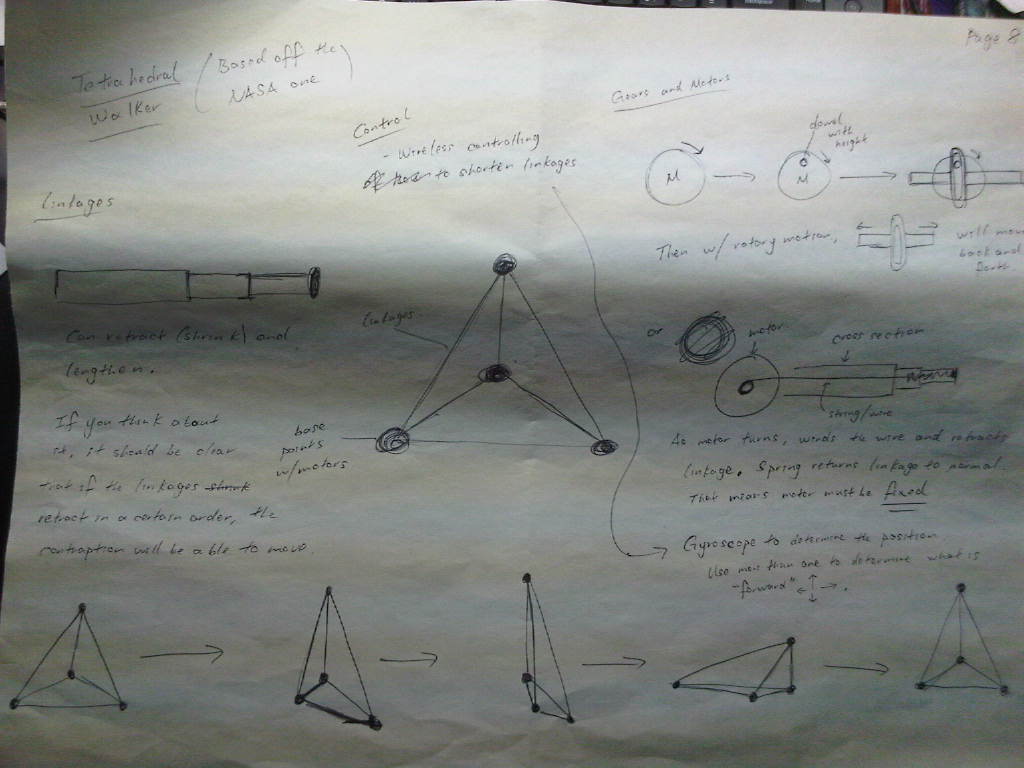 Page 8
Tetrahedral
Walker
(Based off the
NASA one)
Control
- Wireless controlling
to shorten linkages
Gears and Motors
dowel
with
height
M
M
Then w/ rotary motion,
will move
back and
forth.
Linkages
Can retract (shrink) and
lengthen.
If you think about
it, it should be clear
that if the linkages shrink
retract in a certain order, the
contraption will be able to move.
linkages
base
points
w/motors
or
motor
cross section
string/wire
As motor turns, winds the wire and retracts
linkage. Spring returns linkage to normal.
That means motor must be fixed
Gyroscope to determine the position
Use more than one to determine what is
"forward"